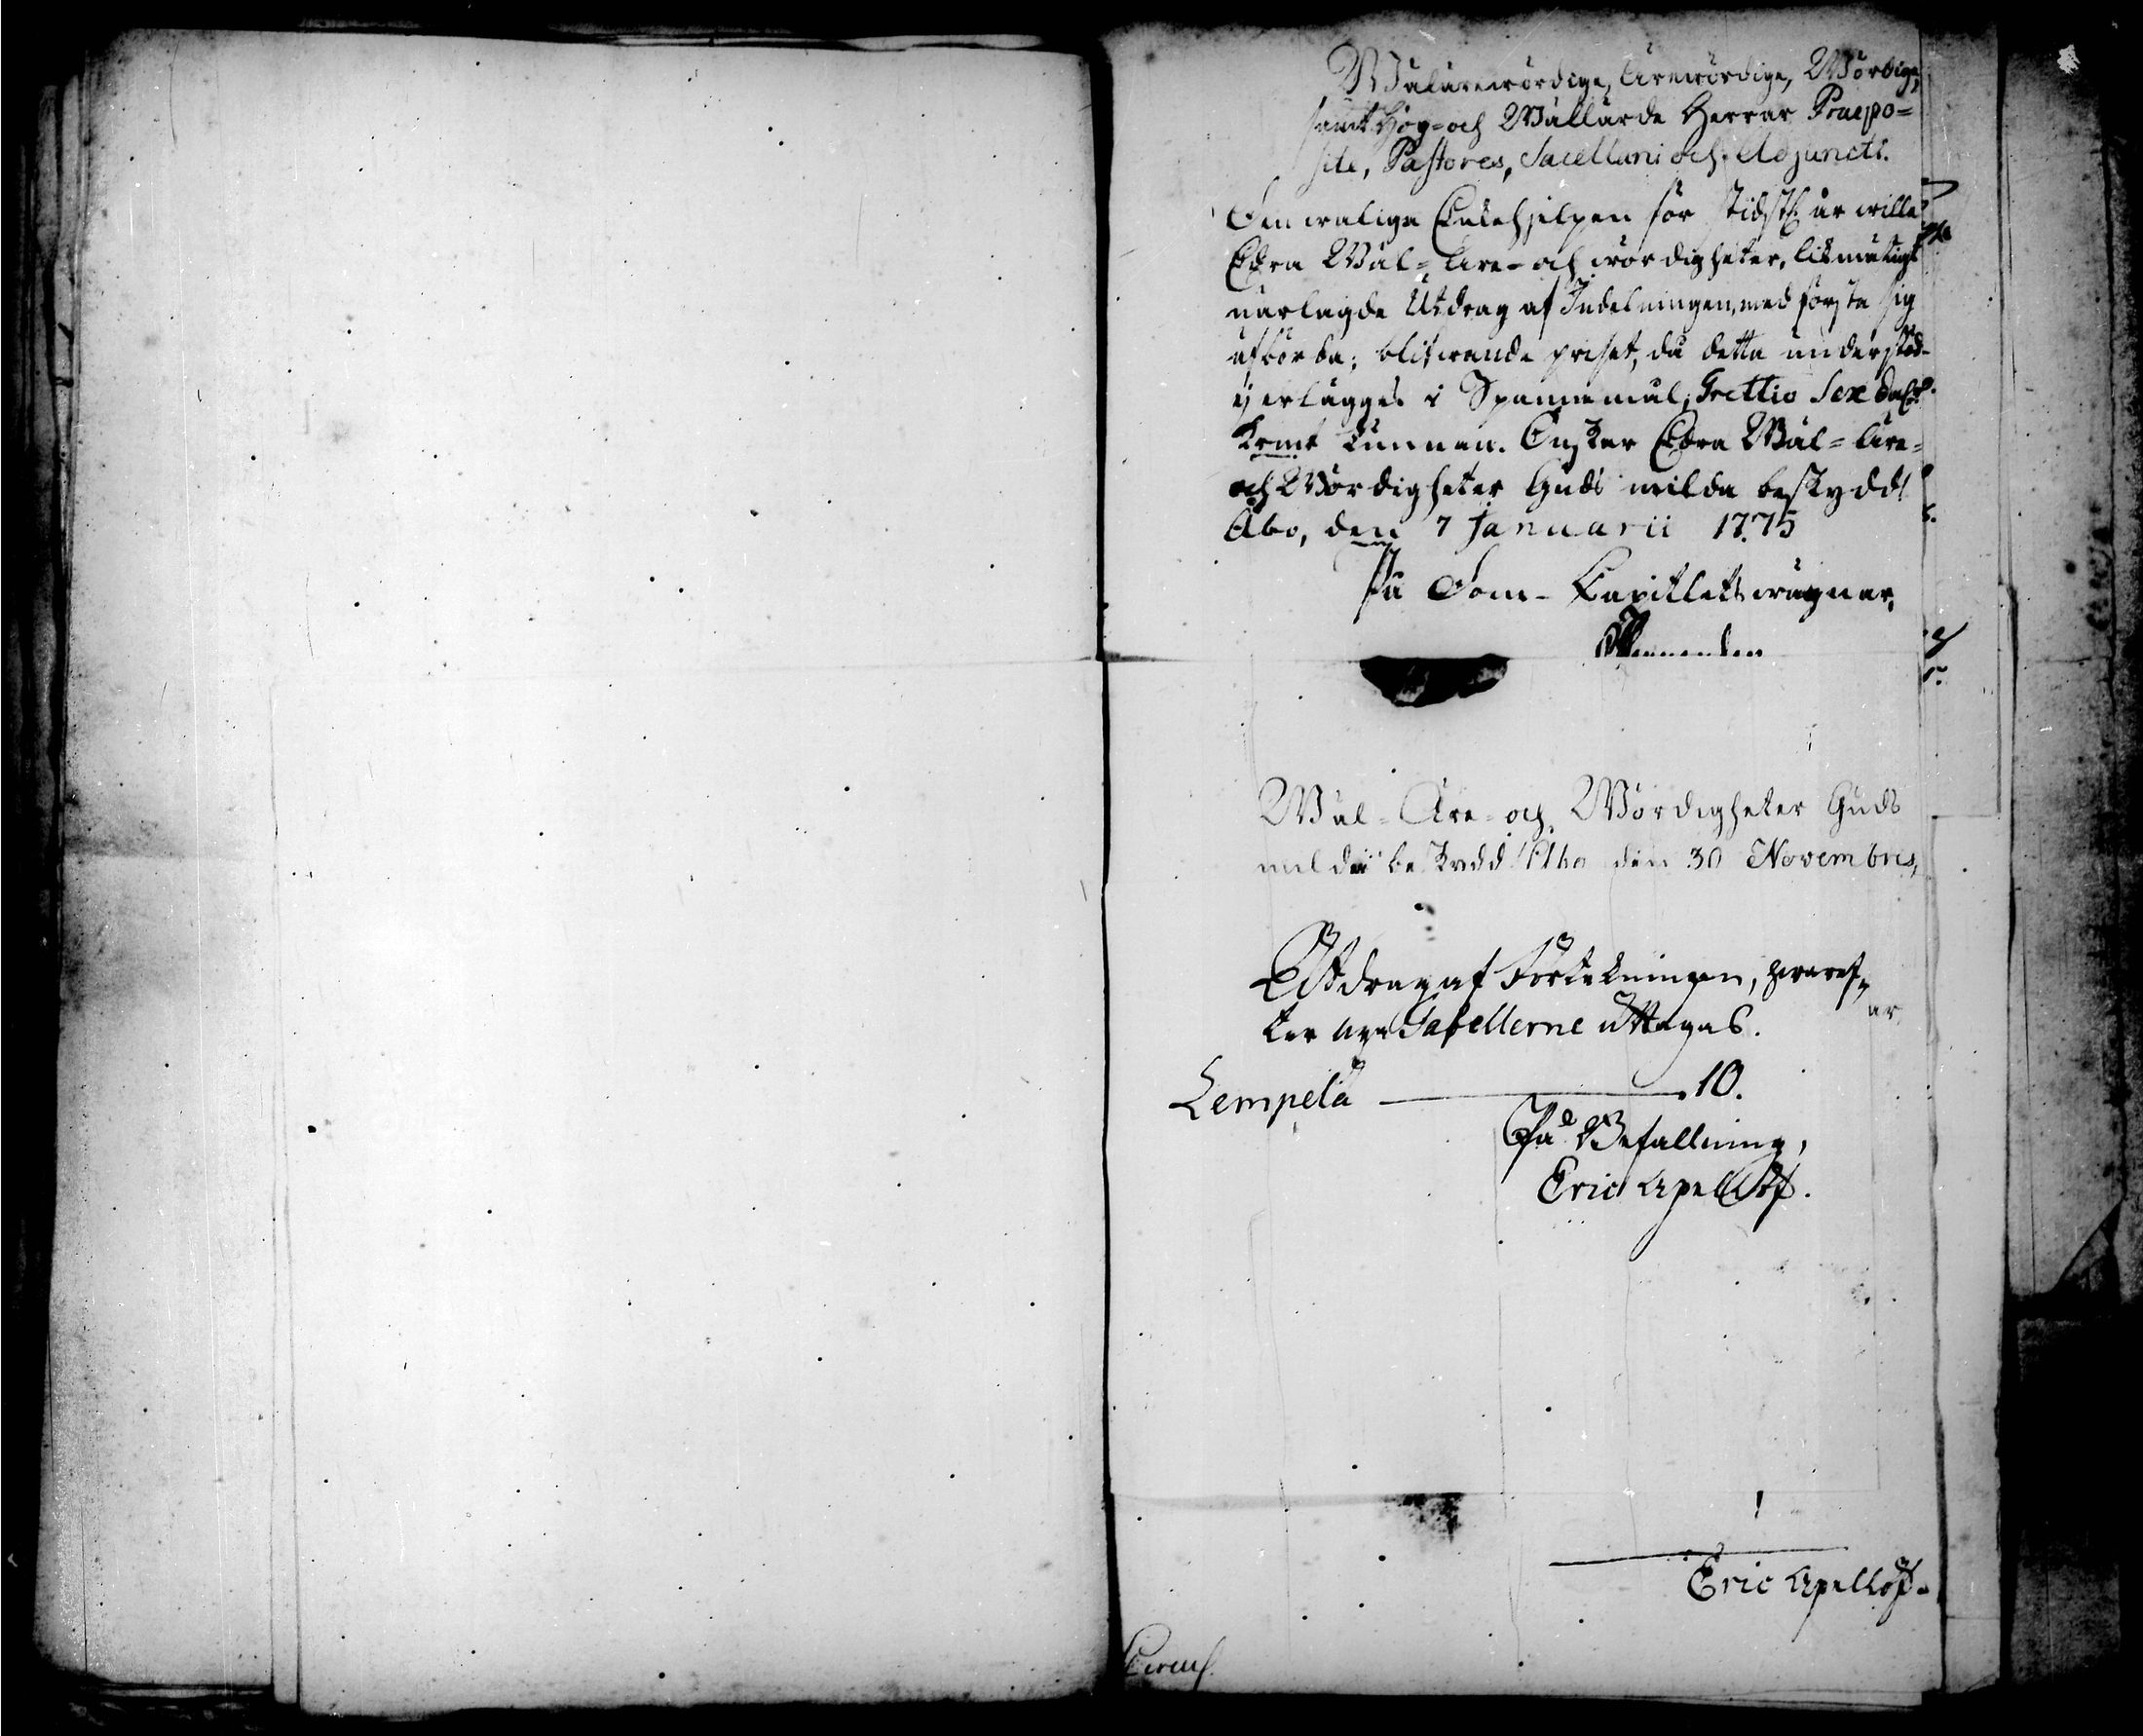 Wälärewördige, Ärewördige, Wördige,
samt Hög- och Wällärde Herrar Praepo=
siti, Pastores, Sacellani och Adjuncti.
Den wanliga Enkehjelpen för sidstl. år wille
Edra Wäl-, Äre- och wördigheter, likmätigt
närlagde Utdrag af Indelningen, med första sig
afbörda; blifwande priset, då detta understöd
ej erlägges i Spannemål, Trettio Sex dal.
Kmt tunnan. Önskar Edra Wäl- Äre-
och Wördigheter Guds milda beskydd!
Åbo, den 7 Januarii 1775
På Dom-Capitlets wägnar,
Wäl- Äre- och Wördigheter Guds
milda beskydd! Åbo den 30 Novembris,
Utdrag af Förtekningen, hwaref=
ter nya Tabellerne uttagas.
ar
Lempelä 10.
På Befallning,
Eric Apellöf.
Eric Apellöf.